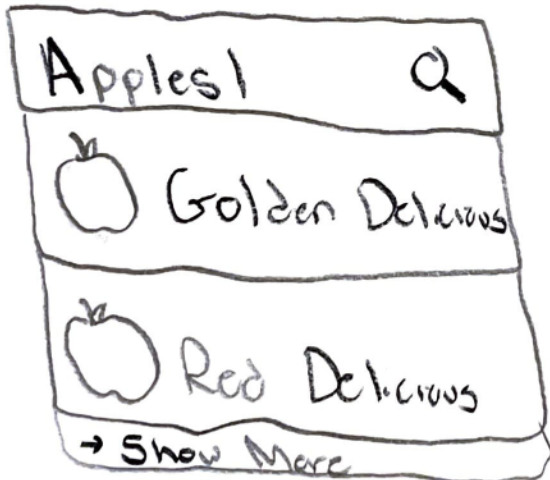 Apples|
Golden Delicious
Red Delicious
→ Show More